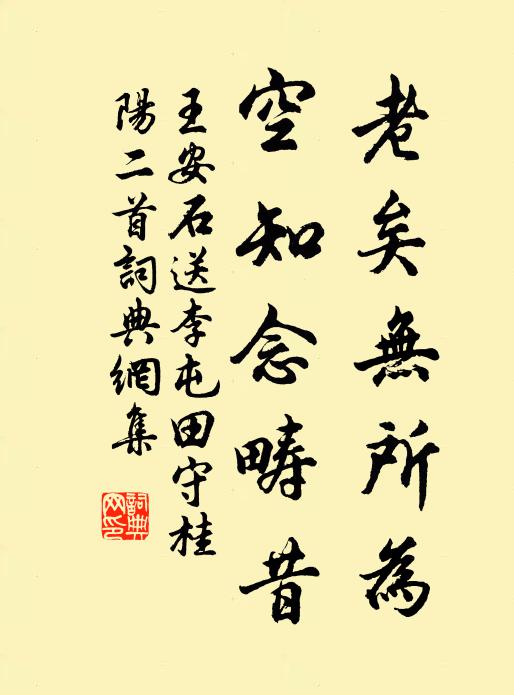 老矣無所為
空知念疇昔
王安石送李屯田守桂
陽二首詞典網集
詞典
网印